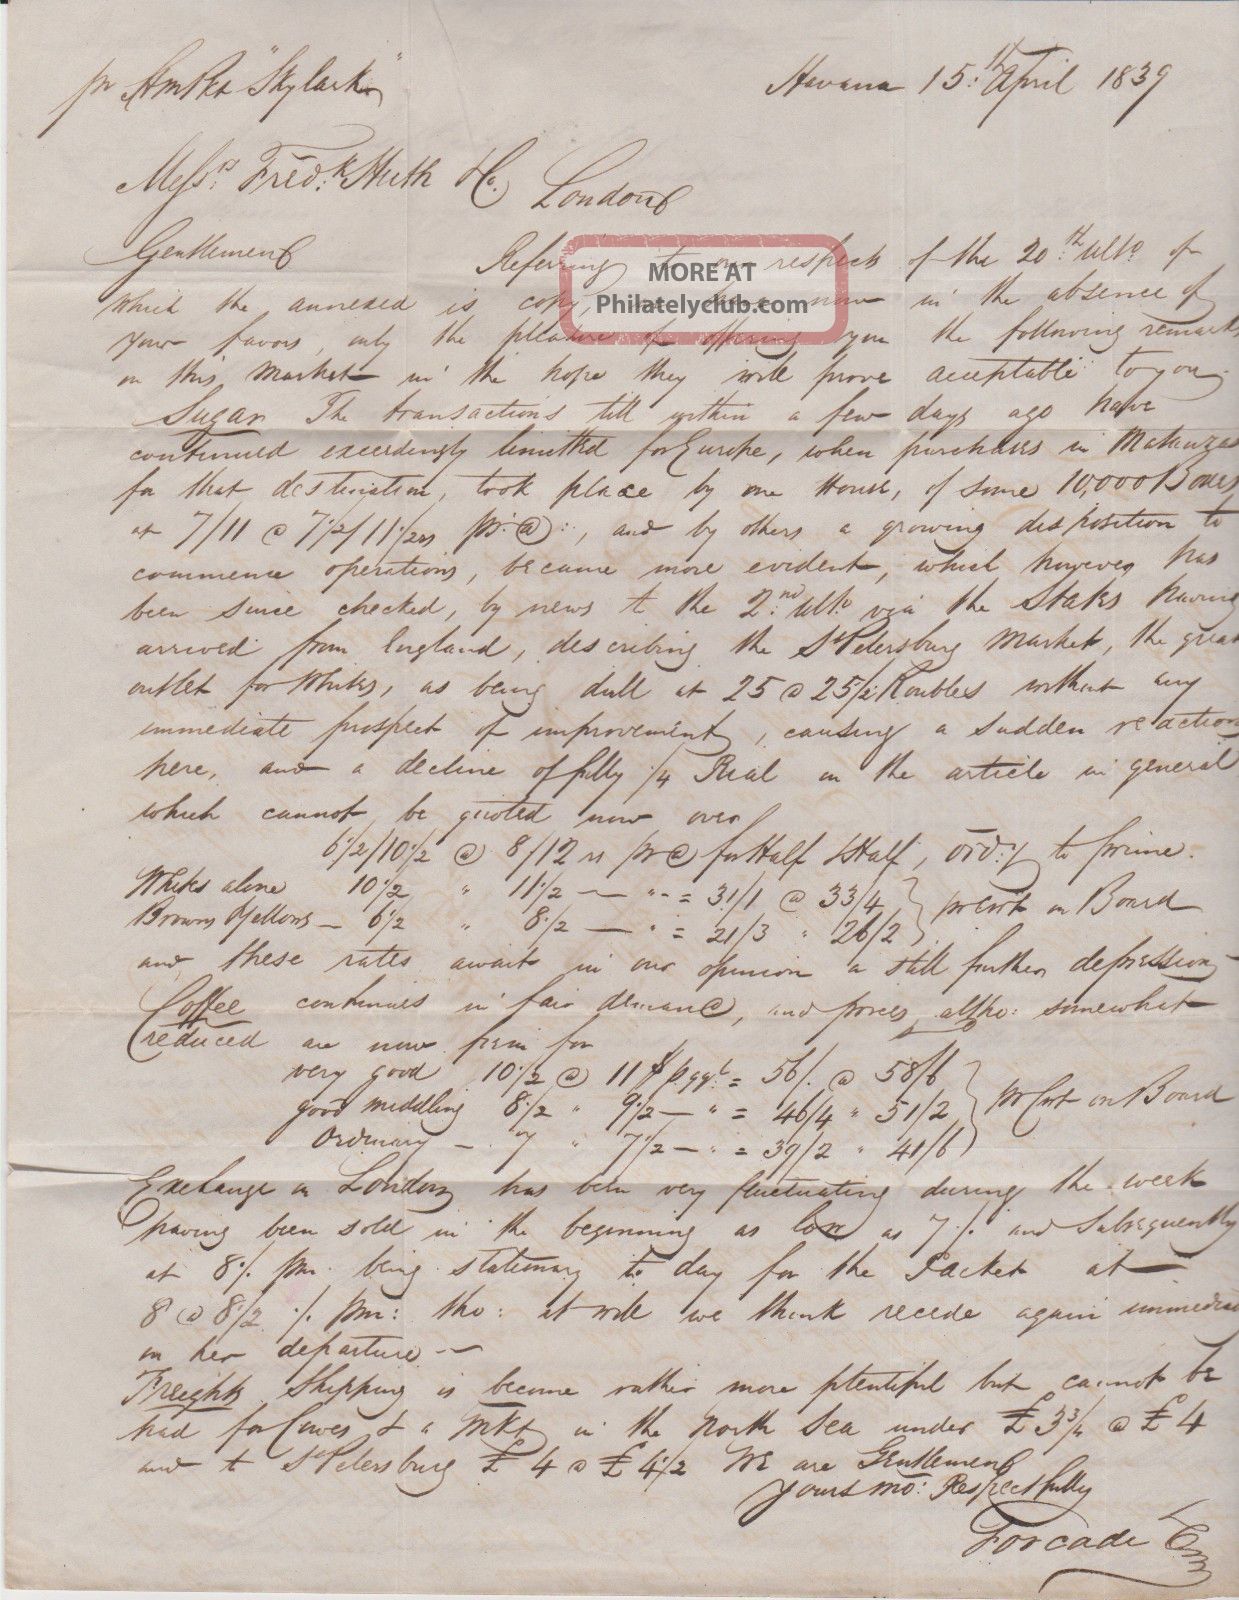 pr Am Pkt "Skylark"
Havana 15th April 1839
Messrs. Fredk. Huth & Co. London
Gentlemen Referring to our respects of the 20th ulto. of
MORE AT
Philatelyclub.com
which the annexed is copy, we have now in the absence of
your favors, only the pleasure of offering you the following remarks
on this Market in the hope they will prove acceptable to you.
Sugar The transactions till within a few days ago have
continued exceedingly limitted for Europe, when purchases in Matanzas
for that destination, took place by one House, of some 10,000 Boxes
at 7/11 @ 7½/11½ rs pr @:, and by others a growing disposition to
commence operations, became more evident, which however has
been since checked, by news to the 2nd ulto. via the States having
arrived from England, describing the St Petersburg Market, the great
outlet for Whites, as being dull at 25 @ 25½ Roubles without any
immediate prospect of improvement, causing a sudden reaction
here, and a decline of fully ¼ Real on the article in general
which cannot be quoted now over
6½/10½ @ 8/12 rs pr @ for Half & Half, ordy to prime.
Whites alone 10½ " 11½ — " = 31/1 @ 33/4 } pr Cwt on Board
Browns & Yellows — 6½ " 8½ — " = 21/3 " 26/2
and these rates await in our opinion a still further depression
Coffee continues in fair demand, and prices altho: somewhat
reduced are now firm for
very good 10½ @ 11 $ p qql = 56/. @ 58/6 } pr Cwt on Board
good middling 8½ " 9½ — " = 46/4 " 51/2
Ordinary — 7 " 7½ — " = 39/2 " 41/6
Exchange on London has been very fluctuating during the week
having been sold in the beginning as low as 7% and subsequently
at 8% pm. being stationary to day for the Packet at
8 @ 8½ % pm: tho: it will we think recede again immediately
on her departure —
Freights Shipping is become rather more plentiful but cannot be
had for Cowes & a Mkt in the North Sea under £3¾ @ £4
and to St Petersburg £4 @ £4½ We are Gentlemen
Yours mo: Respectfully
Forcade